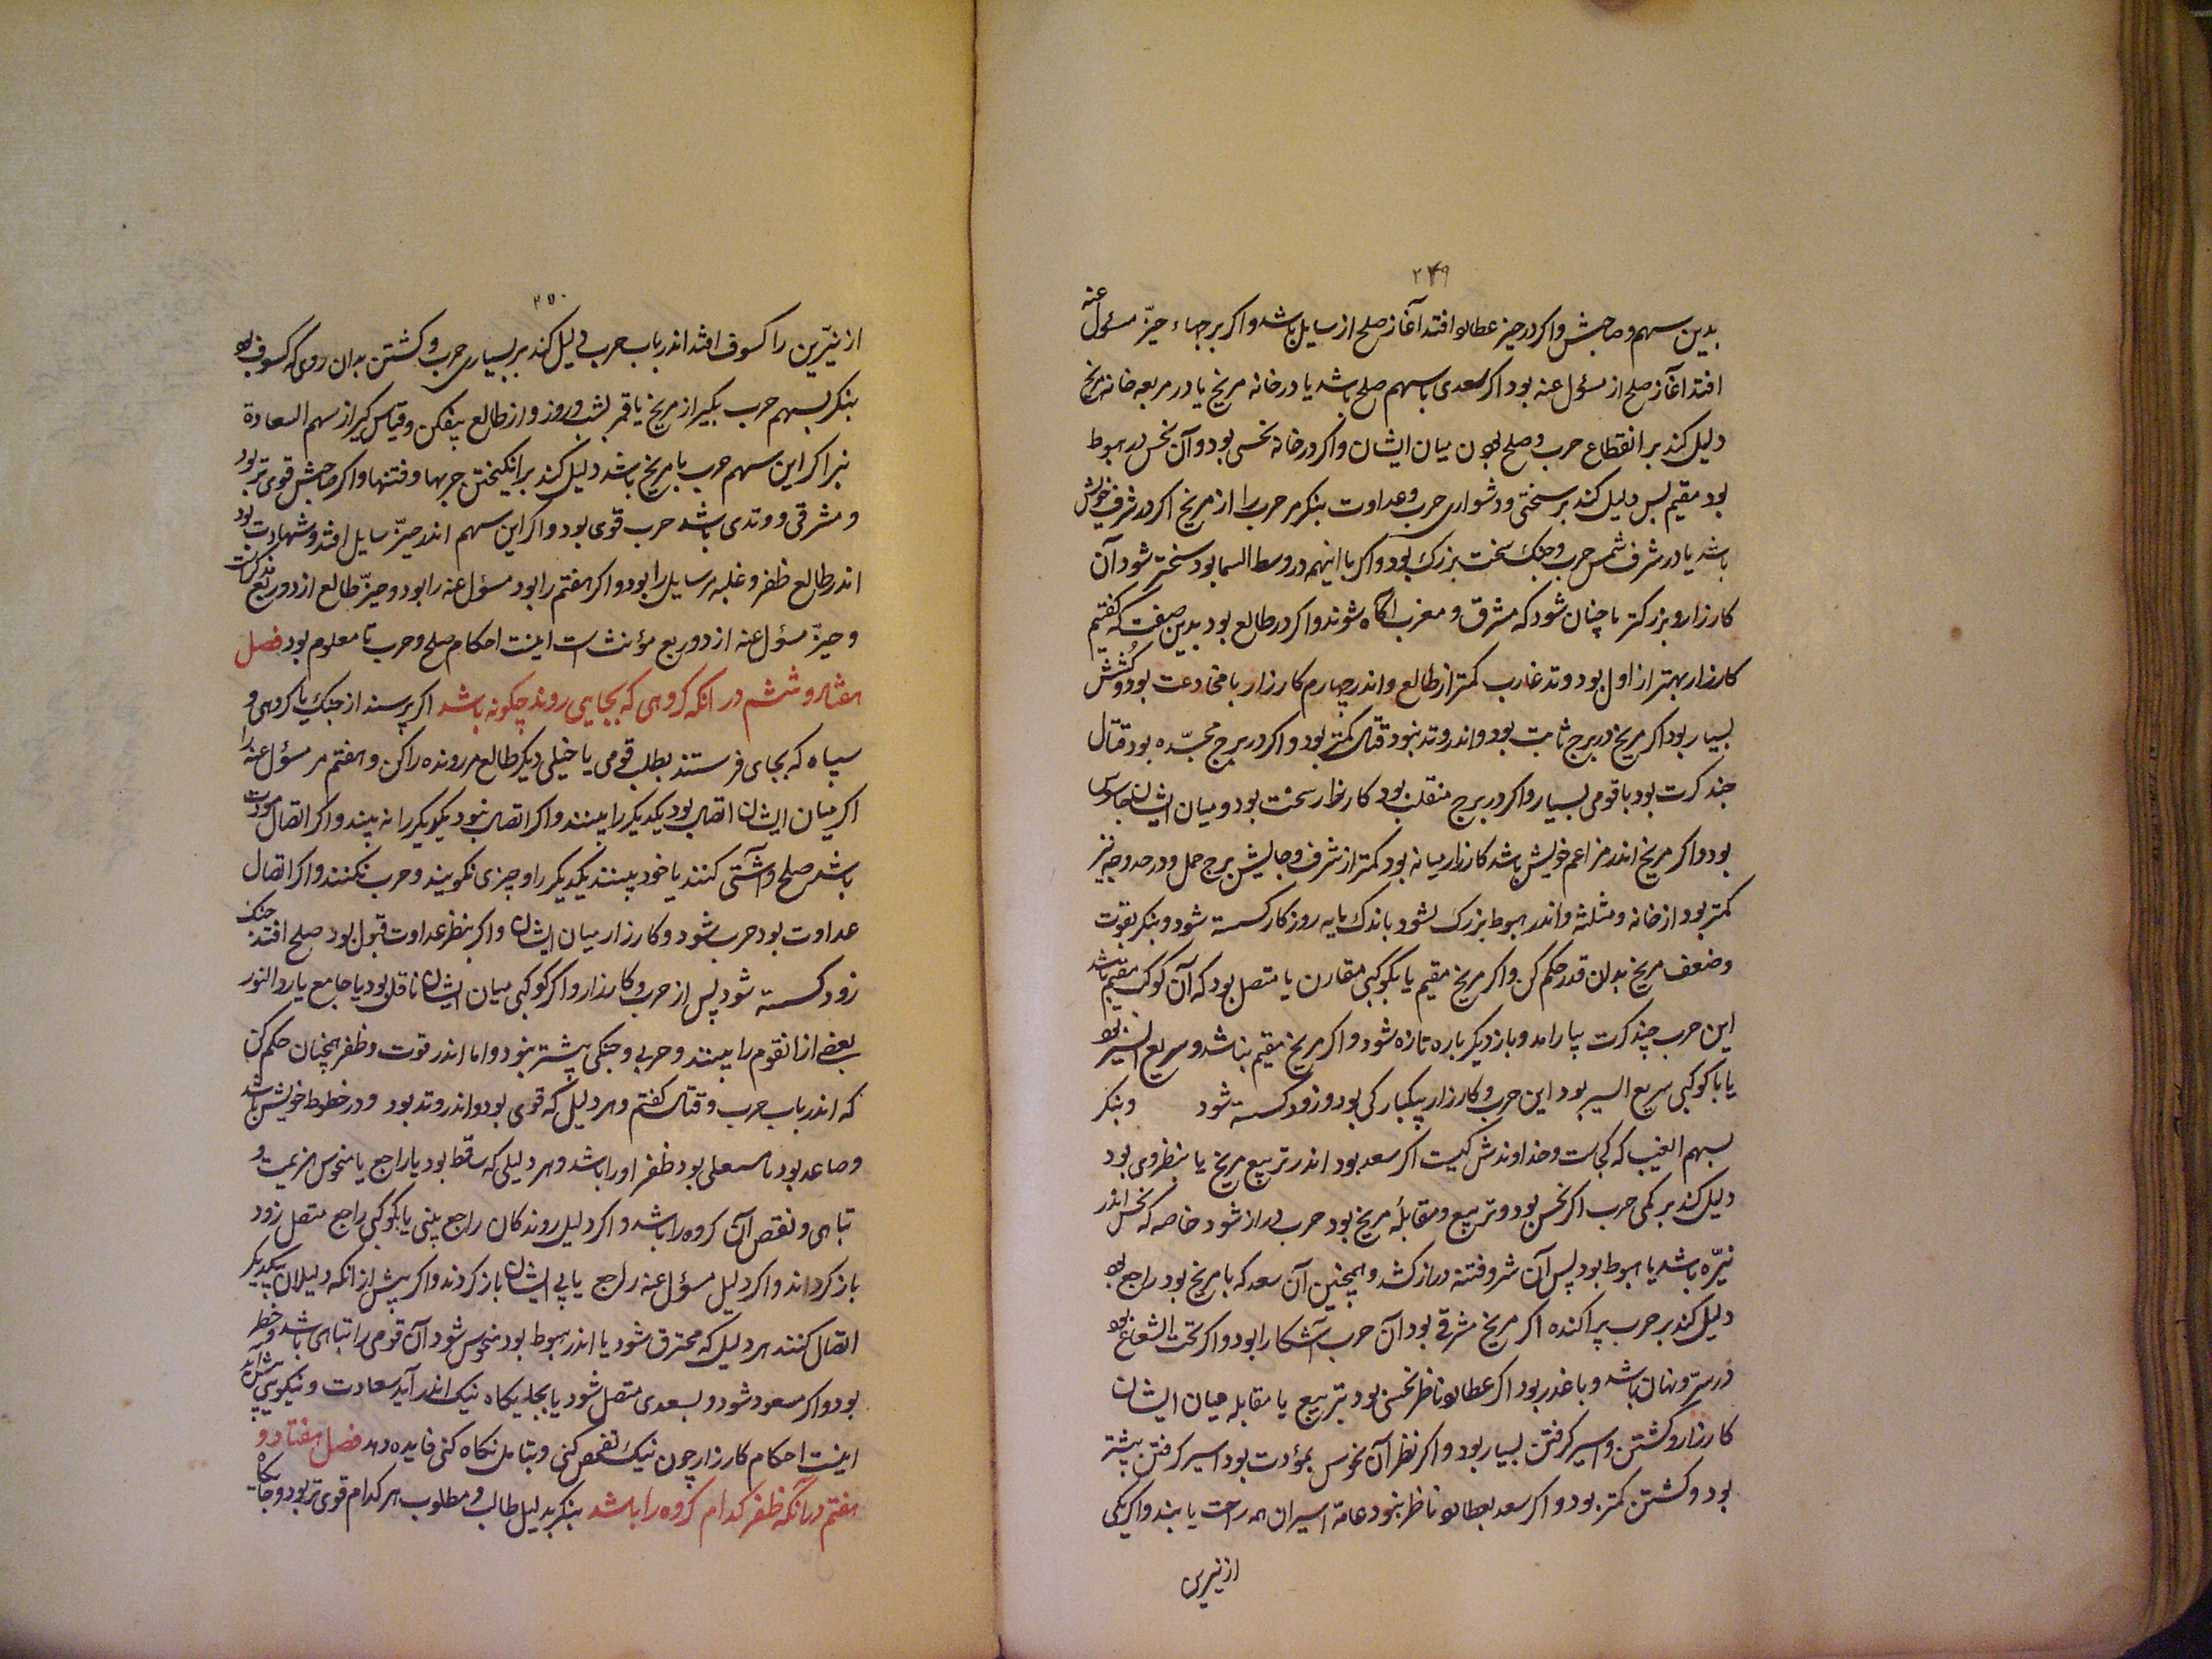 ۲۴۹
بدین سهم و صاحبش واکر در حیز عطارد افتد آغاز صلح از سایل باشد واکر برجهاء حیّز مسئول عنه
افتد آغاز صلح از مسؤل عنه بود اکر سعدی با سهم صلح باشد یا در خانه مریخ یا در مربعه خانه مریخ
دلیل کند بر انقطاع حرب و صلح بودن میان ایشان واکر در خانه نحسی بود و آن نحس در هبوط
بود مقیم پس دلیل کند بر سختی و دشواری حرب و عداوت بنکر مر حرب را از مریخ اکر در شرف خویش
باشد یا در شرف شمس حرب و جنک سخت بزرک بود واکر با اینهم در وسط السما بود سختر شود آن
کارزار و بزرکتر تا چنان شود که مشرق و مغرب آکاه شوند واکر در طالع بود بدین صفت که کفتیم
کارزار بهتر از اول بود وتد غارب کمتر از طالع و اندر چهارم کارزار با مخادعت بود و کُشش
بسیار بود اکر مریخ در برج ثابت بود و اندر وتد نبود قتال کمتر بود واکر در برج مجسّده بود قتال
چند کرت بود با قومی بسیار واکر در برج منقلب بود کارزار سخت بود و میان ایشان جاسوس
بود واکر مریخ اندر مزاعم خویش باشد کارزار میانه بود کمتر از شرف و جالیش برج حمل و در حد و وجه نیز
کمتر بود از خانه و مثلثه و اندر هبوط بزرک نشود باندک مایه روزکار کسسته شود و بنکر بقوت
و ضعف مریخ بدان قدر حکم کن واکر مریخ مقیم یا بکوکبی مقارن یا متصل بود که آن کوکب مقیم باشد
این حرب چند کرت بیارامد و باز دیکر باره تازه شود واکر مریخ مقیم نباشد و سریع السیر بود
یا با کوکبی سریع السیر بود این حرب و کارزار بیکبارکی بود و زود کسسته شود و بنکر
بسهم الغیب که کجاست و خداوندش کیست اکر سعد بود اندر تربیع مریخ یا بنظر وی بود
دلیل کند بر کمی حرب اکر نحس بود و تربیع و مقابلهٔ مریخ بود حرب دراز شود خاصه که نحس اندر
نیّره باشد یا هبوط بود پس آن شر و فتنه دراز کشد و همچنین آن سعد که با مریخ بود راجع بود
دلیل کند بر حرب پراکنده اکر مریخ مشرقی بود آن حرب آشکارا بود واکر تحت الشعاع بود
در ستر و نهان باشد و با غدر بود اکر عطارد ناظر نحسی بود بتربیع یا مقابله میان ایشان
کارزار و کشتن و اسیر کرفتن بسیار بود واکر نظر آن نحوس بمودت بود اسیر کرفتن بیشتر
بود و کشتن کمتر بود واکر سعد بعطارد ناظر نبود عامهٔ اسیران همه راحت یابند واکر یکی
از نیرین
۲۵۰
از نیّرین را کسوف افتد اندر باب حرب دلیل کند بر بسیاری حرب و کشتن بدان روی که کسوف بود
بنکر بسهم حرب بکیر از مریخ یا قمر بشب و روز و از طالع بیفکن و قیاس کیر از سهم السعادة
نیز اکر این سهم حرب با مریخ باشد دلیل کند بر انکیختن حربها و فتنها واکر صاحبش قوی تر بود
و مشرقی و وتدی باشد حرب قوی بود واکر این سهم اندر حیّز سایل افتد و شهادت بود
اندر طالع ظفر و غلبه مر سایل را بود واکر هفتم را بود مسؤل عنه را بود و حیّز طالع از دو ربع مذکرست
و حیّز مسؤل عنه از دو ربع مؤنث است اینست احکام صلح و حرب تا معلوم بود فصل
هفتاد و ششم در انکه کروهی که بجایی روند چکونه باشد اکر پرسند از جنک یا کروهی و
سپاه که بجای فرستند بطلب قومی یا خیلی دیکر طالع مر رونده را کن و هفتم مر مسؤل عنه را
اکر میان ایشان اتصال بود یکدیکر را ببینند واکر اتصال نبود یکدیکر را نه بینند واکر اتصال مودت
باشد صلح و آشتی کنند یا خود ببینند یکدیکر را و چیزی نکویند و حرب نکنند واکر اتصال
عداوت بود حرب شود و کارزار میان ایشان واکر بنظر عداوت قبول بود صلح افتد جنک
زود کسسته شود پس از حرب و کارزار واکر کوکبی میان ایشان ناقل بود یا جامع یا رد النور
بعضی از انقوم را ببینند و حربی و جنکی بیشتر نبود واما اندر قوت و ظفر همچنان حکم کن
که اندر باب حرب و قتال کفتم وهر دلیل که قوی بود و اندر وتد بود و در خطوط خویش باشد
و صاعد بود یا مستعلی بود ظفر او را باشد و هر دلیلی که ساقط بود یا راجع یا منحوس هزیمت و
تباهی و نقص آن کروه را باشد و اکر دلیل روندکان راجع بینی یا بکوکبی راجع متصل زود
باز کرداند واکر دلیل مسؤل عنه راجع یابی ایشان باز کردند واکر پیش از انکه دلیلان بیکدیکر
اتصال کنند هر دلیل که محترق شود یا اندر هبوط بود منحوس شود آن قومی را تباهی باشد و خطر
بود واکر مسعود شود و بسعدی متصل شود یا بجایکاه نیک اندر آید سعادت و نیکویی پیش آید
اینست احکام کارزار چون نیک تفحص کنی و بتامل نکاه کنی فایده دهد فصل هفتاد و
هفتم در آنکه ظفر کدام کروه را باشد بنکر بدلیل طالب و مطلوب هر کدام قوی تر بود و جایکاه